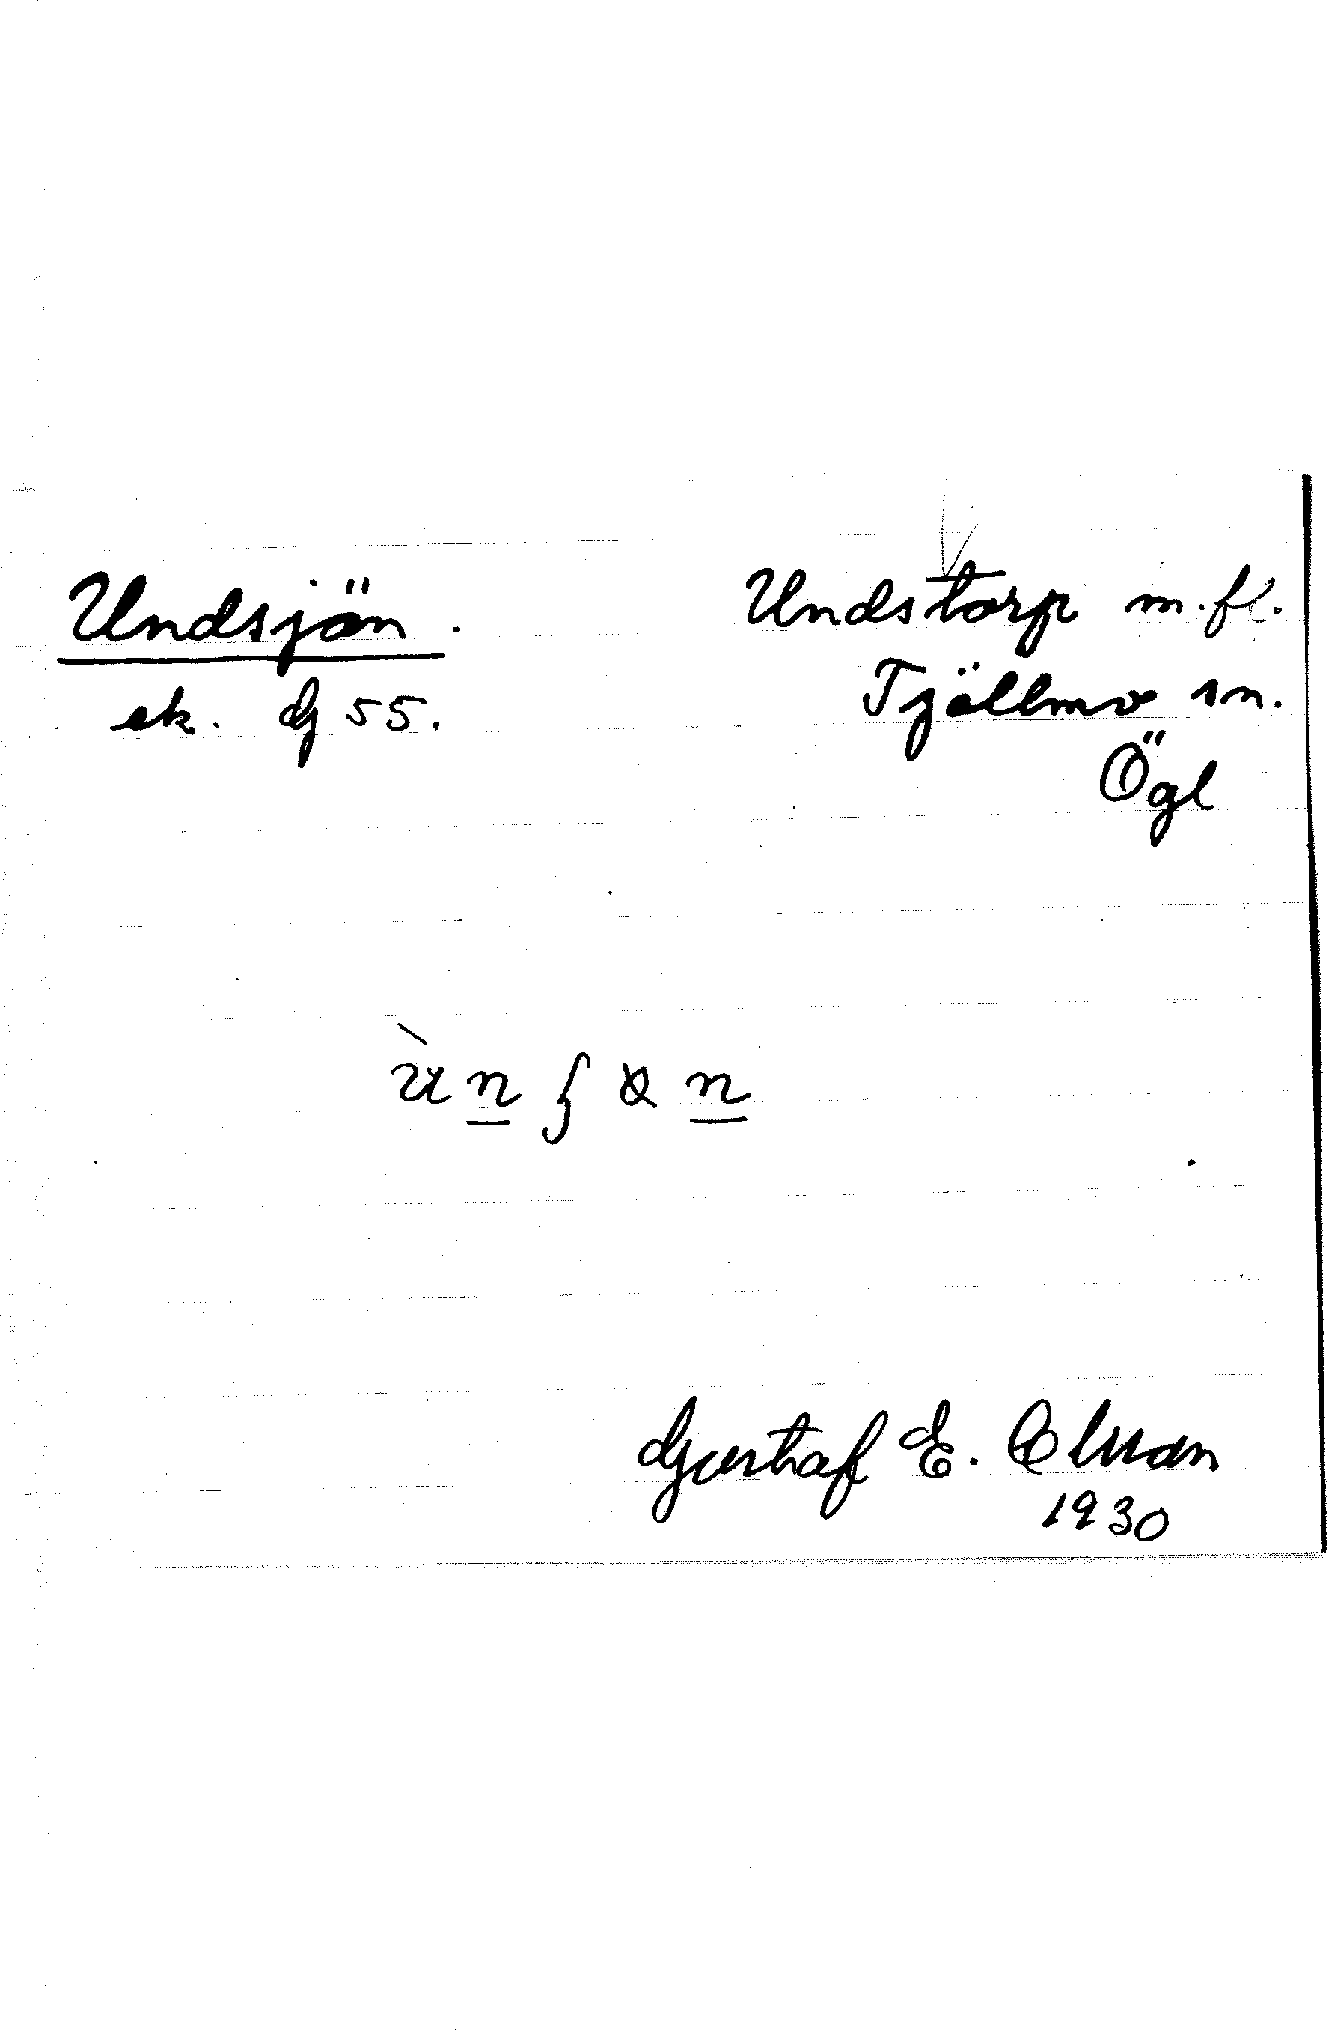 Undsjön.
ek. G 55.
Undstorp m.fl.
Tjällmo sn.
Ögl
Gustaf E.
1930